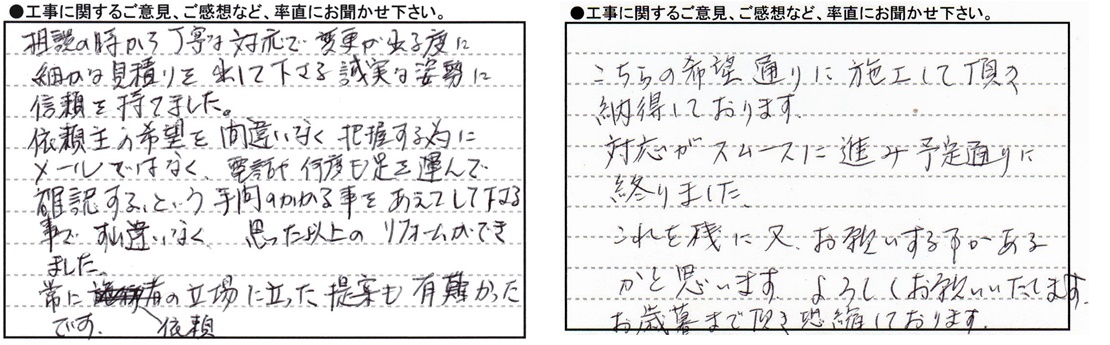 ●工事に関するご意見、ご感想など、率直にお聞かせ下さい。
相談の時から丁寧な対応で変更が出る度に
細かな見積りを出して下さる誠実な姿勢に
信頼を持てました。
依頼主の希望を間違いなく把握する為に
メールではなく、電話や何度も足を運んで
確認する、という手間のかかる事をあえてして下さる
事で すれ違いなく 思った以上のリフォームができ
ました。
常に依頼者の立場に立った提案も有難かった
です。
●工事に関するご意見、ご感想など、率直にお聞かせ下さい。
こちらの希望通りに施工して頂き
納得しております。
対応がスムースに進み予定通りに
終りました。
これを機に又、お願いする事がある
かと思います。よろしくお願いいたします。
お歳暮まで頂き恐縮しております。